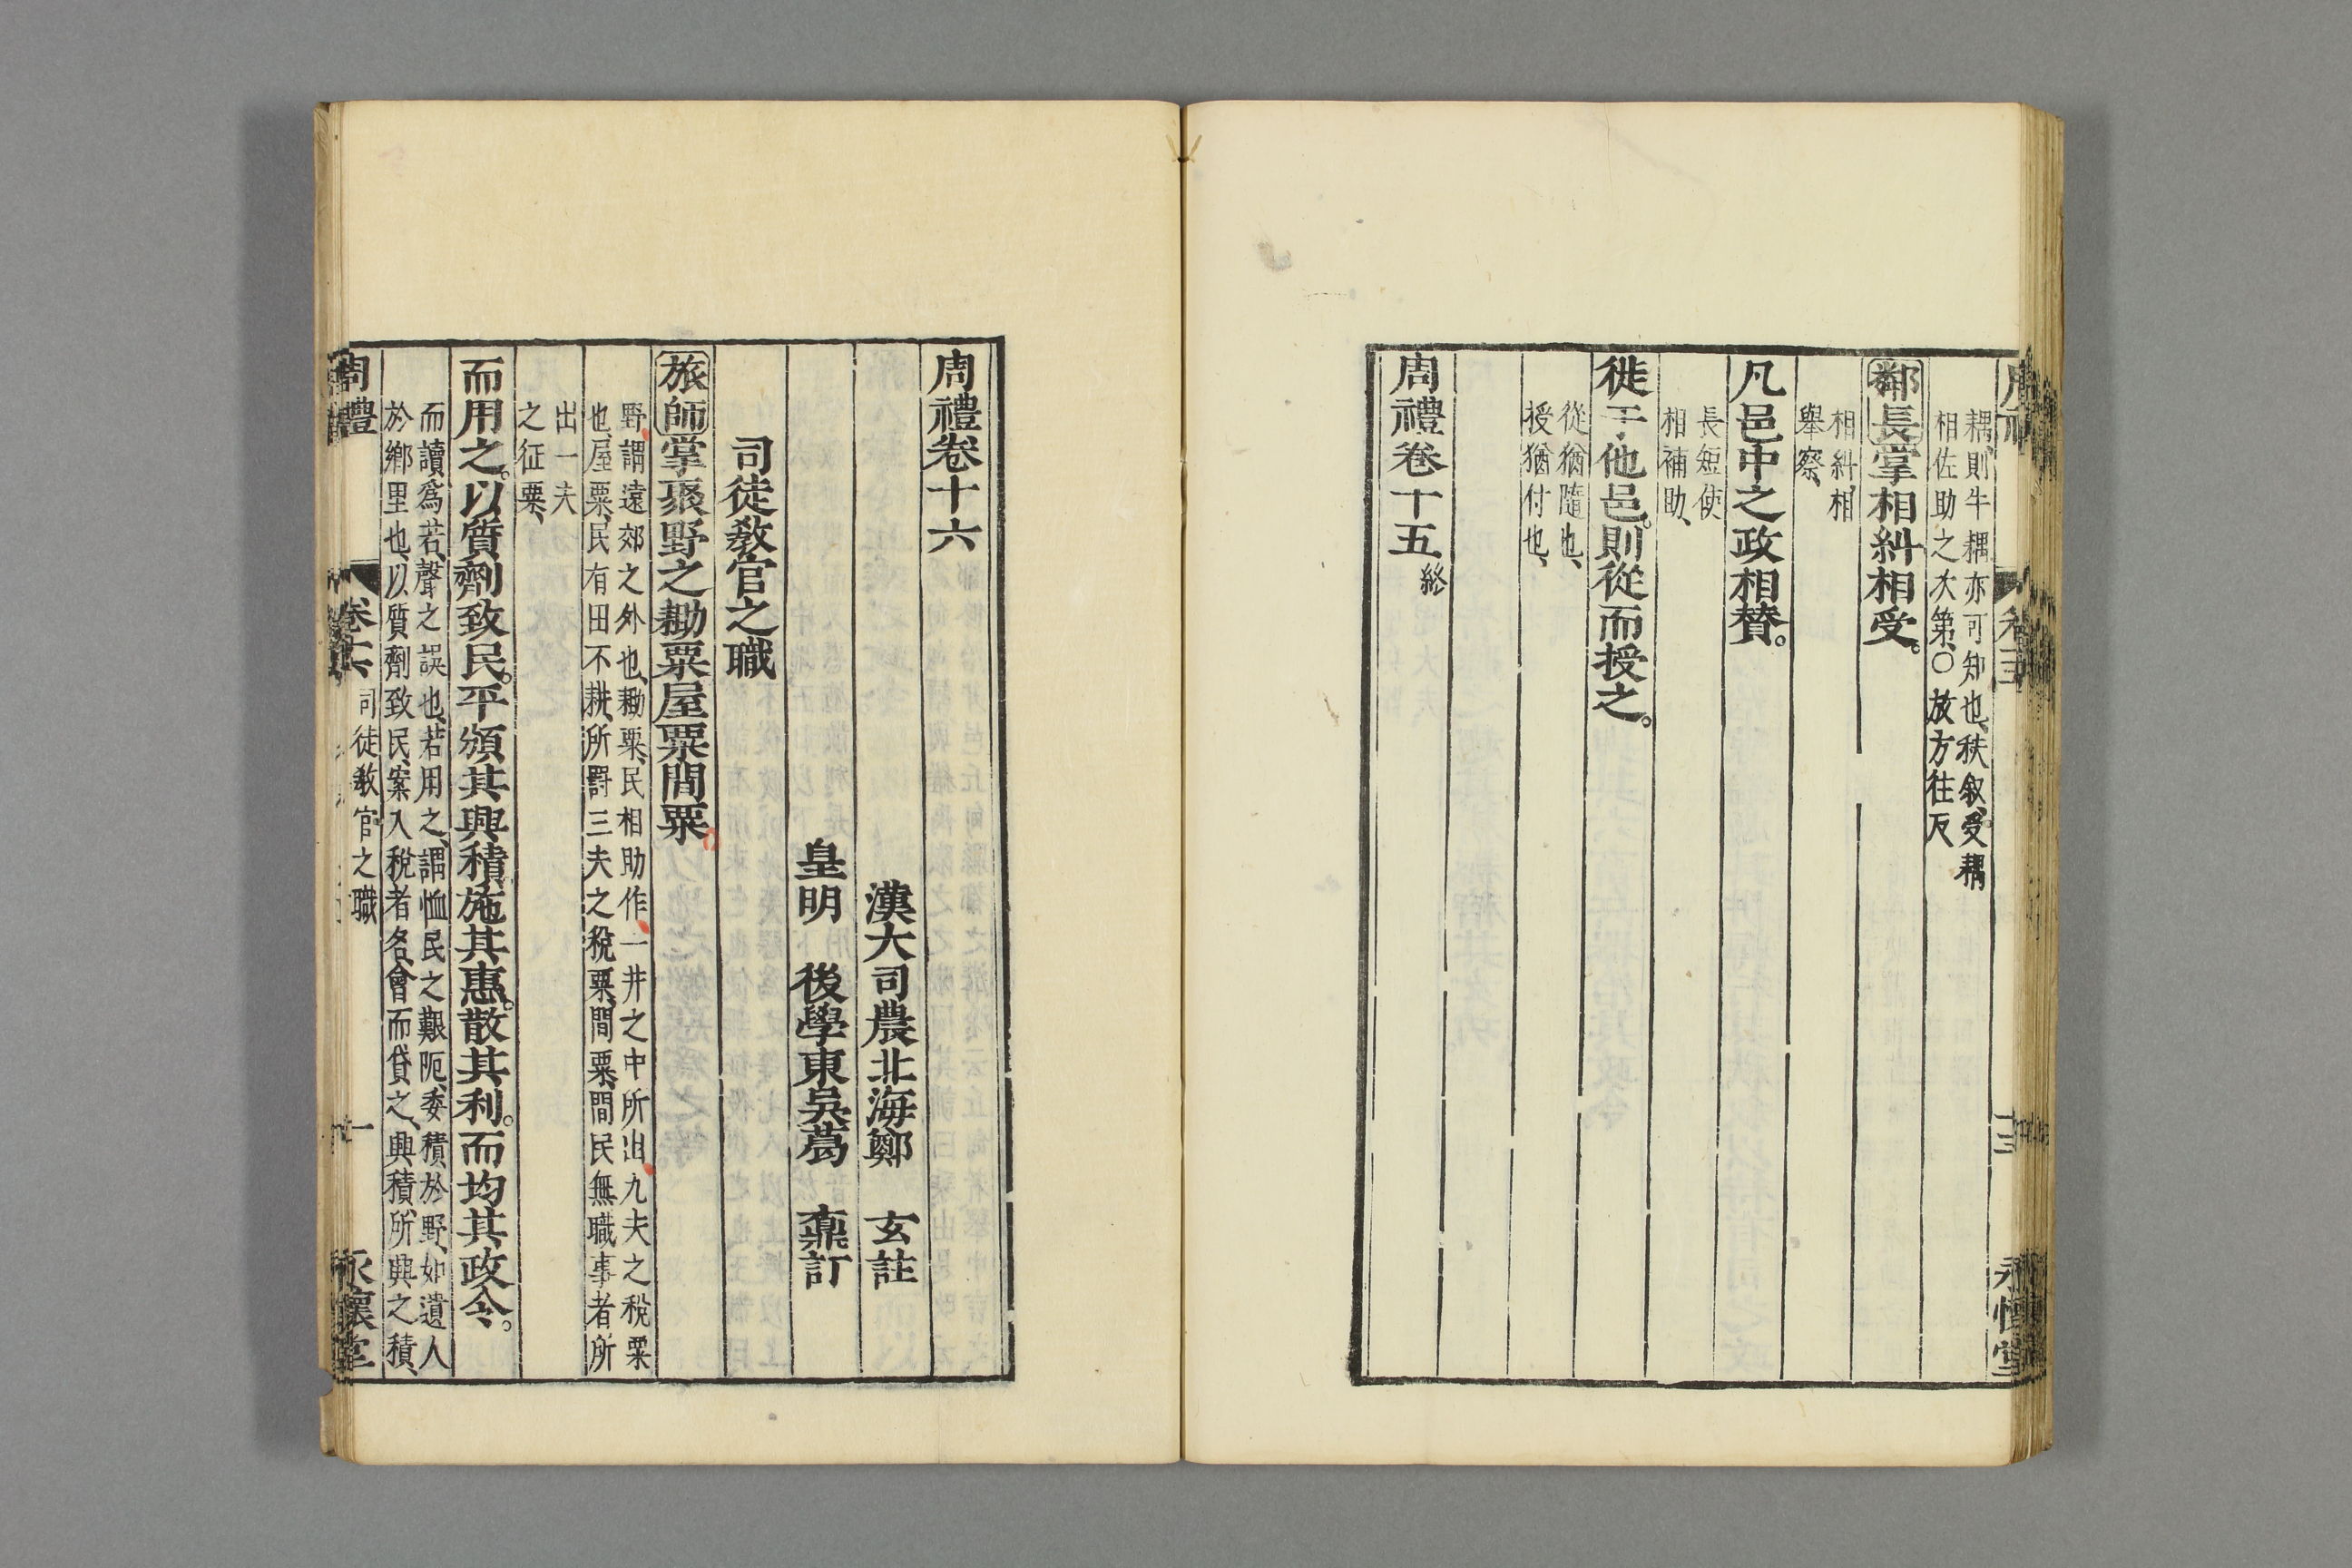 耦則牛耦亦可知也、秩叙、受耦
相佐助之次第、○放方往反
鄰長掌相糾相受。
相糾相
舉察、
凡邑中之政相贊。
長短使
相補助、
徙于他邑。則從而授之。
從猶隨也、
授猶付也、
周禮卷十五終
周禮卷十六
漢大司農北海鄭　玄註
皇明　後學東吳葛　鼒訂
司徒敎官之職
旅師掌聚野之耡粟屋粟間粟。
野、謂遠郊之外也、耡粟、民相助作、一井之中所出、九夫之稅粟
也、屋粟、民有田不耕、所罰三夫之稅粟、間粟、間民無職事者所
出一夫
之征粟、
而用之。以質劑致民。平頒其興積。施其惠。散其利。而均其政令。
而讀爲若、聲之誤也、若用之、謂恤民之艱阨、委積於野、如遺人
於鄉里也、以質劑致民、案入稅者名、會而貸之、興積、所興之積、
周禮　卷十六　司徒敎官之職　一　永懷堂